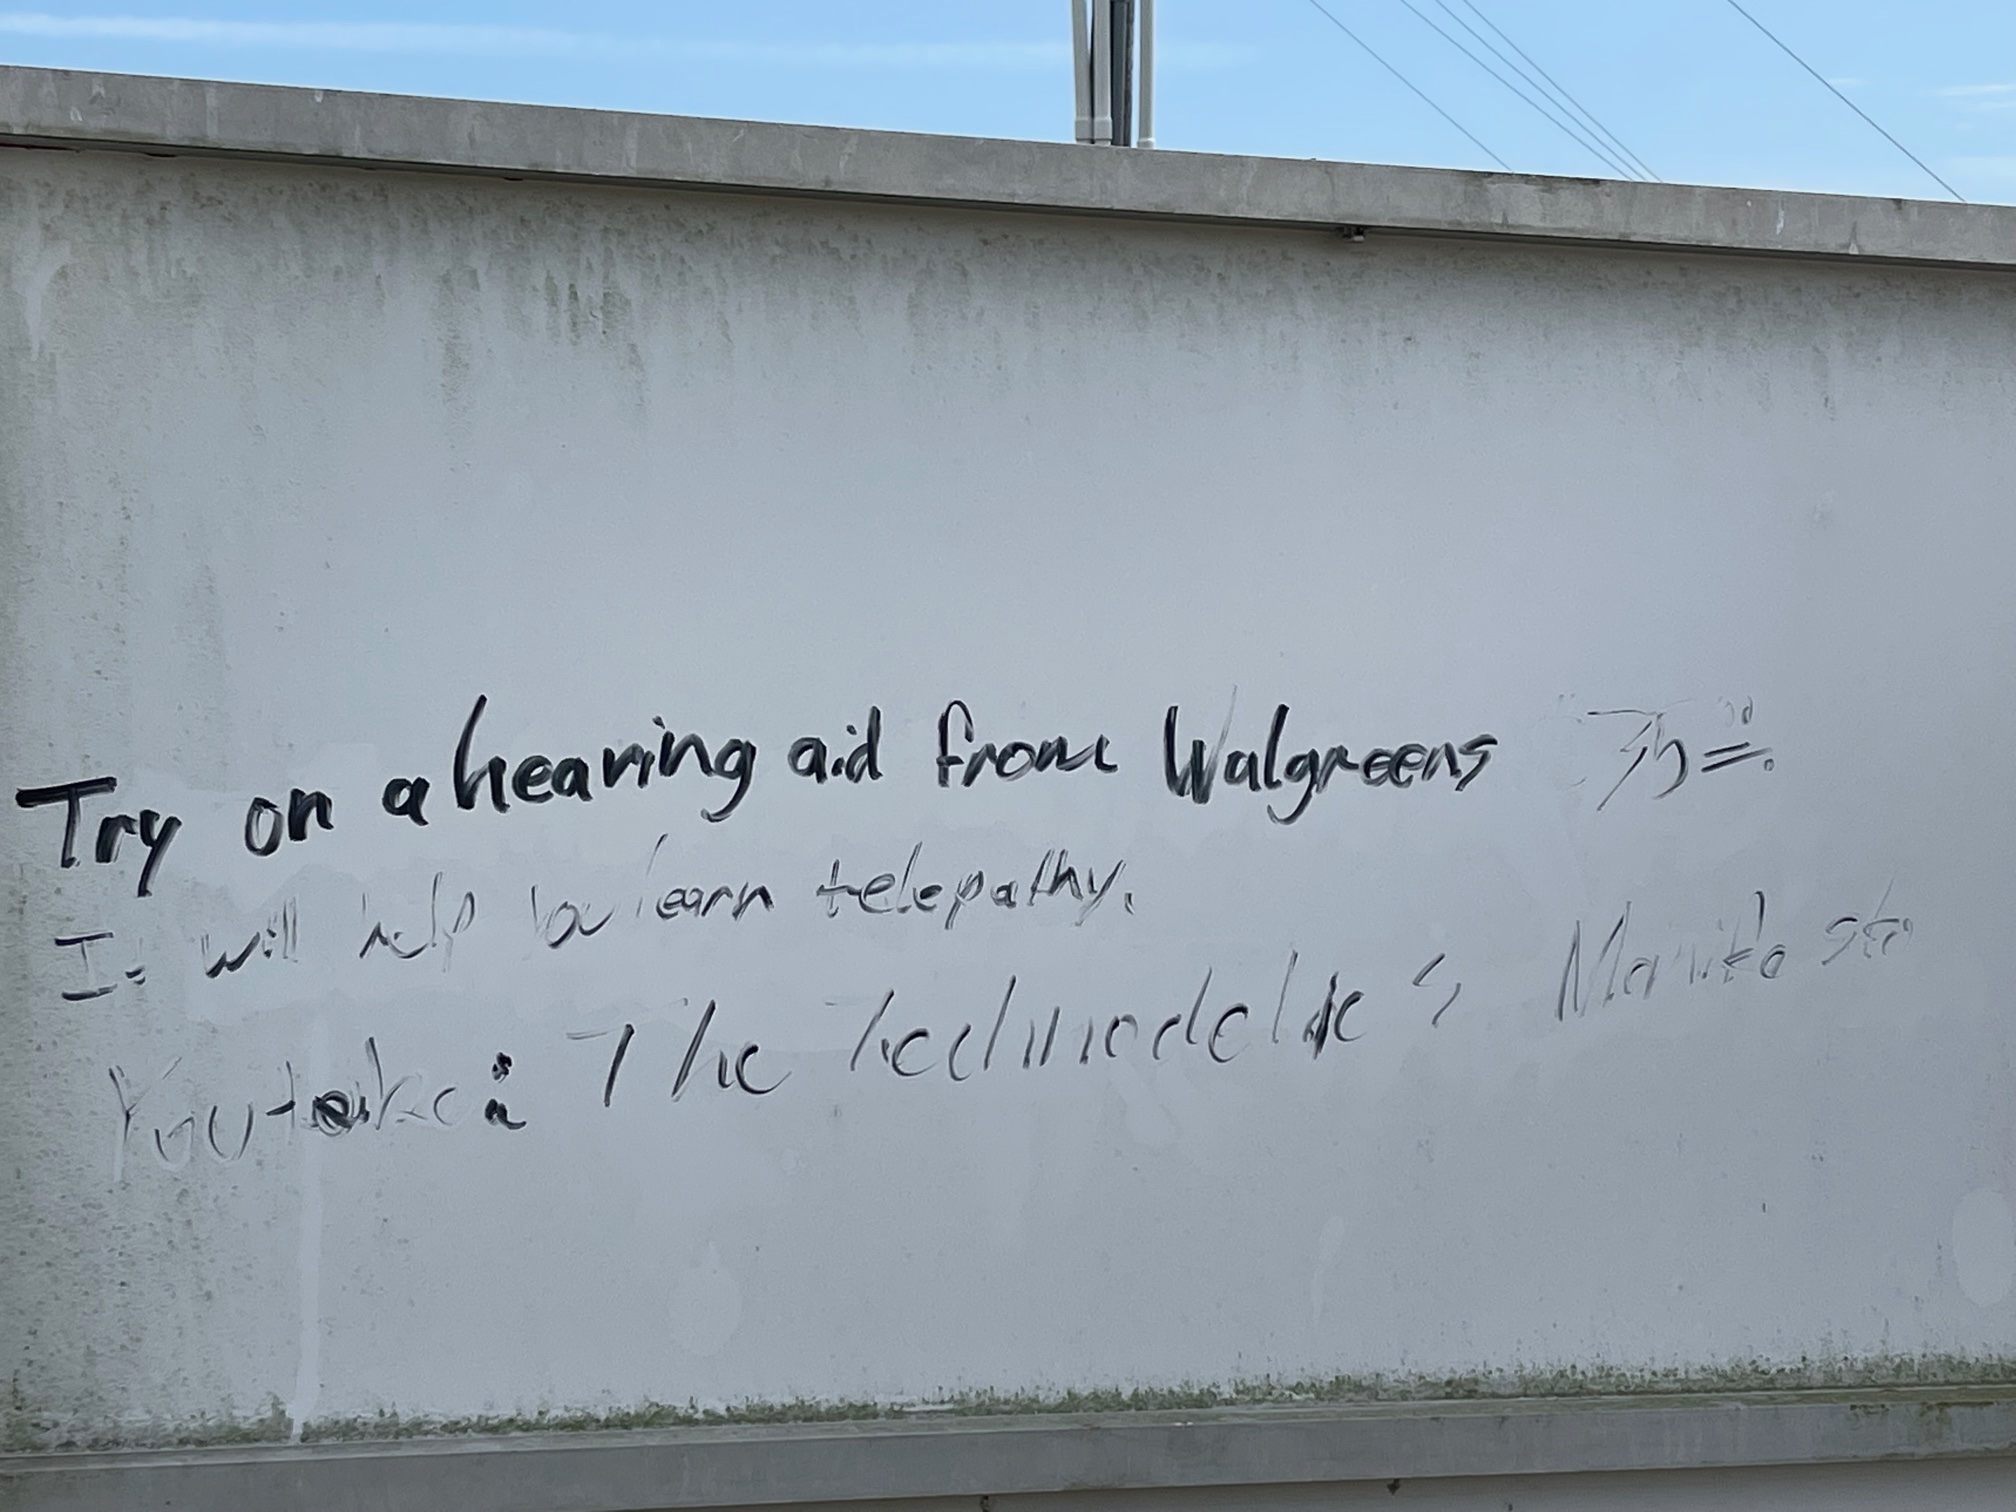 Try on a hearing aid from Walgreens 35 00.
It will help you learn telepathy.
Youtube: The Technodelic's Manifesto